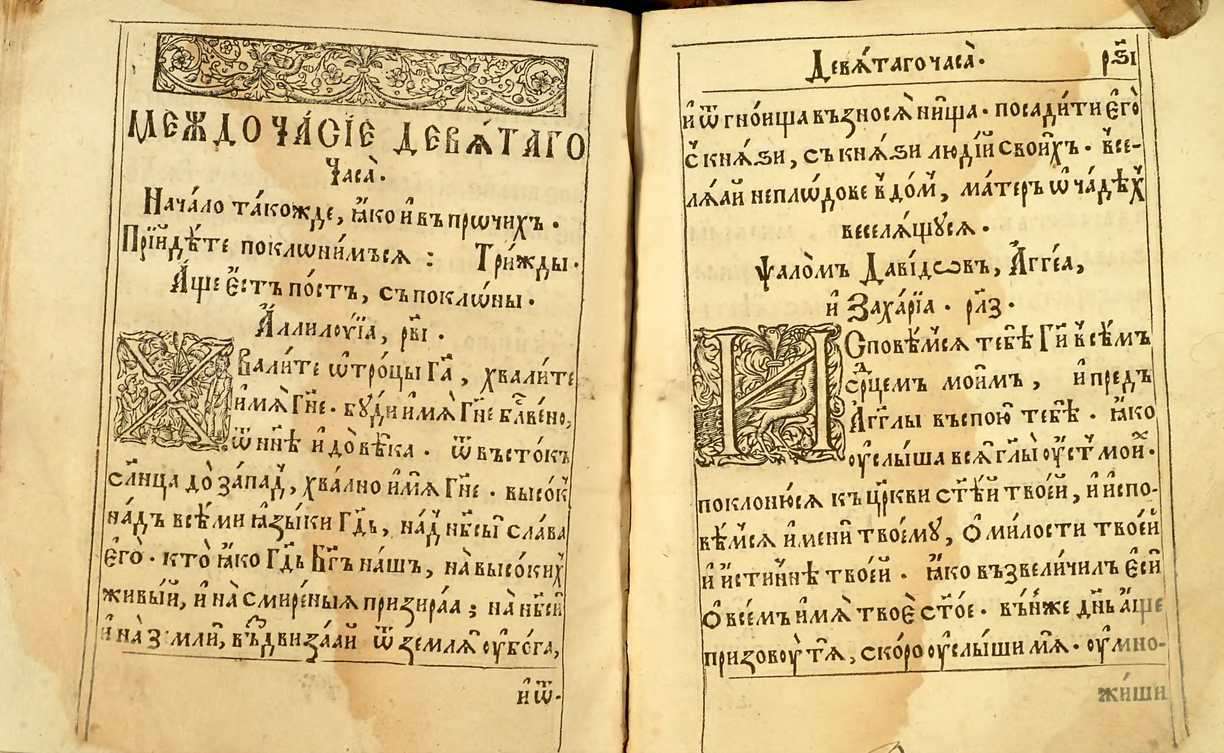 МЕЖДОЧА́СІЕ ДЕВѦ́ТАГО
Часа̀.
Нача́ло та́кожде, ꙗ҆́ко и҆ въ прѡ́чихъ.
Прїйдѣ́те поклѡни́мъсѧ : Три́жды.
А҆́ще є҆́стъ по́стъ, съ поклѡ́ны.
А҆ллилоу́їа, рв҃і.
Хвали́те ѡ҆́троцы Гд҇а, хвали́те
и҆́мѧ Гн҃е. бꙋ́ди и҆́мѧ Гн҃е блг҇ве́но,
ѿ нн҃ѣ и҆ до вѣ́ка. ѿ въсто́къ
сл҃нца до за́пад, хва́лно и҆́мѧ Гн҃е. высо́к
на́дъ всѣ́ми ꙗ҆зы́ки Гд҇ь, на́д нб҃сы̀ сла́ва
є҆го̀. кто̀ ꙗ҆́ко Гд҇ь Бг҃ъ на́шъ, на высо́ких
живы́й, и҆ на смире́ныѧ призира́а ; на нб҃сѝ
и҆ на з мли̑, въздвиза́ай ѿ землѧ̀ оу҆бо́га,
и҆ ѿ
Девѧ́таго часа̀. рѕ҃і
и҆ ѿ гно́ища възносѧ̀ ни́ща. посади́ти є҆го̀
с̾ кнѧ́ѕи, съ кнѧ́ѕи люді́й свои́хъ. все-
лѧ́ай непло́дове в̾ до́м, ма́терь ѡ҆ ча́дѣх
веселѧ́щꙋсѧ.
Ѱало́мъ Дави́дѡвъ, А҆гге́а,
и҆ Заха́рїа. рл҃з.
И҆сповѣ́мсѧ тебѣ̀ Гд҇и всѣ́мъ
ср҇дцемъ мои́мъ, и҆ предъ
А҆́гг҃лы въспою̀ тебѣ̀. ꙗ҆́ко
оу҆слы́ша всѧ̑ гл҃ы оу҆́ст мои́х.
поклоню́сѧ къ цр҃кви ст҃ѣ́й твое́й, и҆ и҆спо-
вѣ́мсѧ и҆́мени твоемꙋ̀, Ѻ҆ ми́лости твое́й
и҆ и҆́стиннѣ твое́й. ꙗ҆́ко възвели́чилъ є҆сѝ
Ѻ҆ все́мъ и҆́мѧ твоѐ ст҃о́е. в̾ ньже дн҃ь а҆́ще
призовоу̀ тѧ̀, ско́ро оу҆слы́ши мѧ̀. оу҆мно-
жи́ши